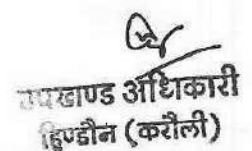 उपखाण्ड अधिकारी
हिण्डौन (करौली)